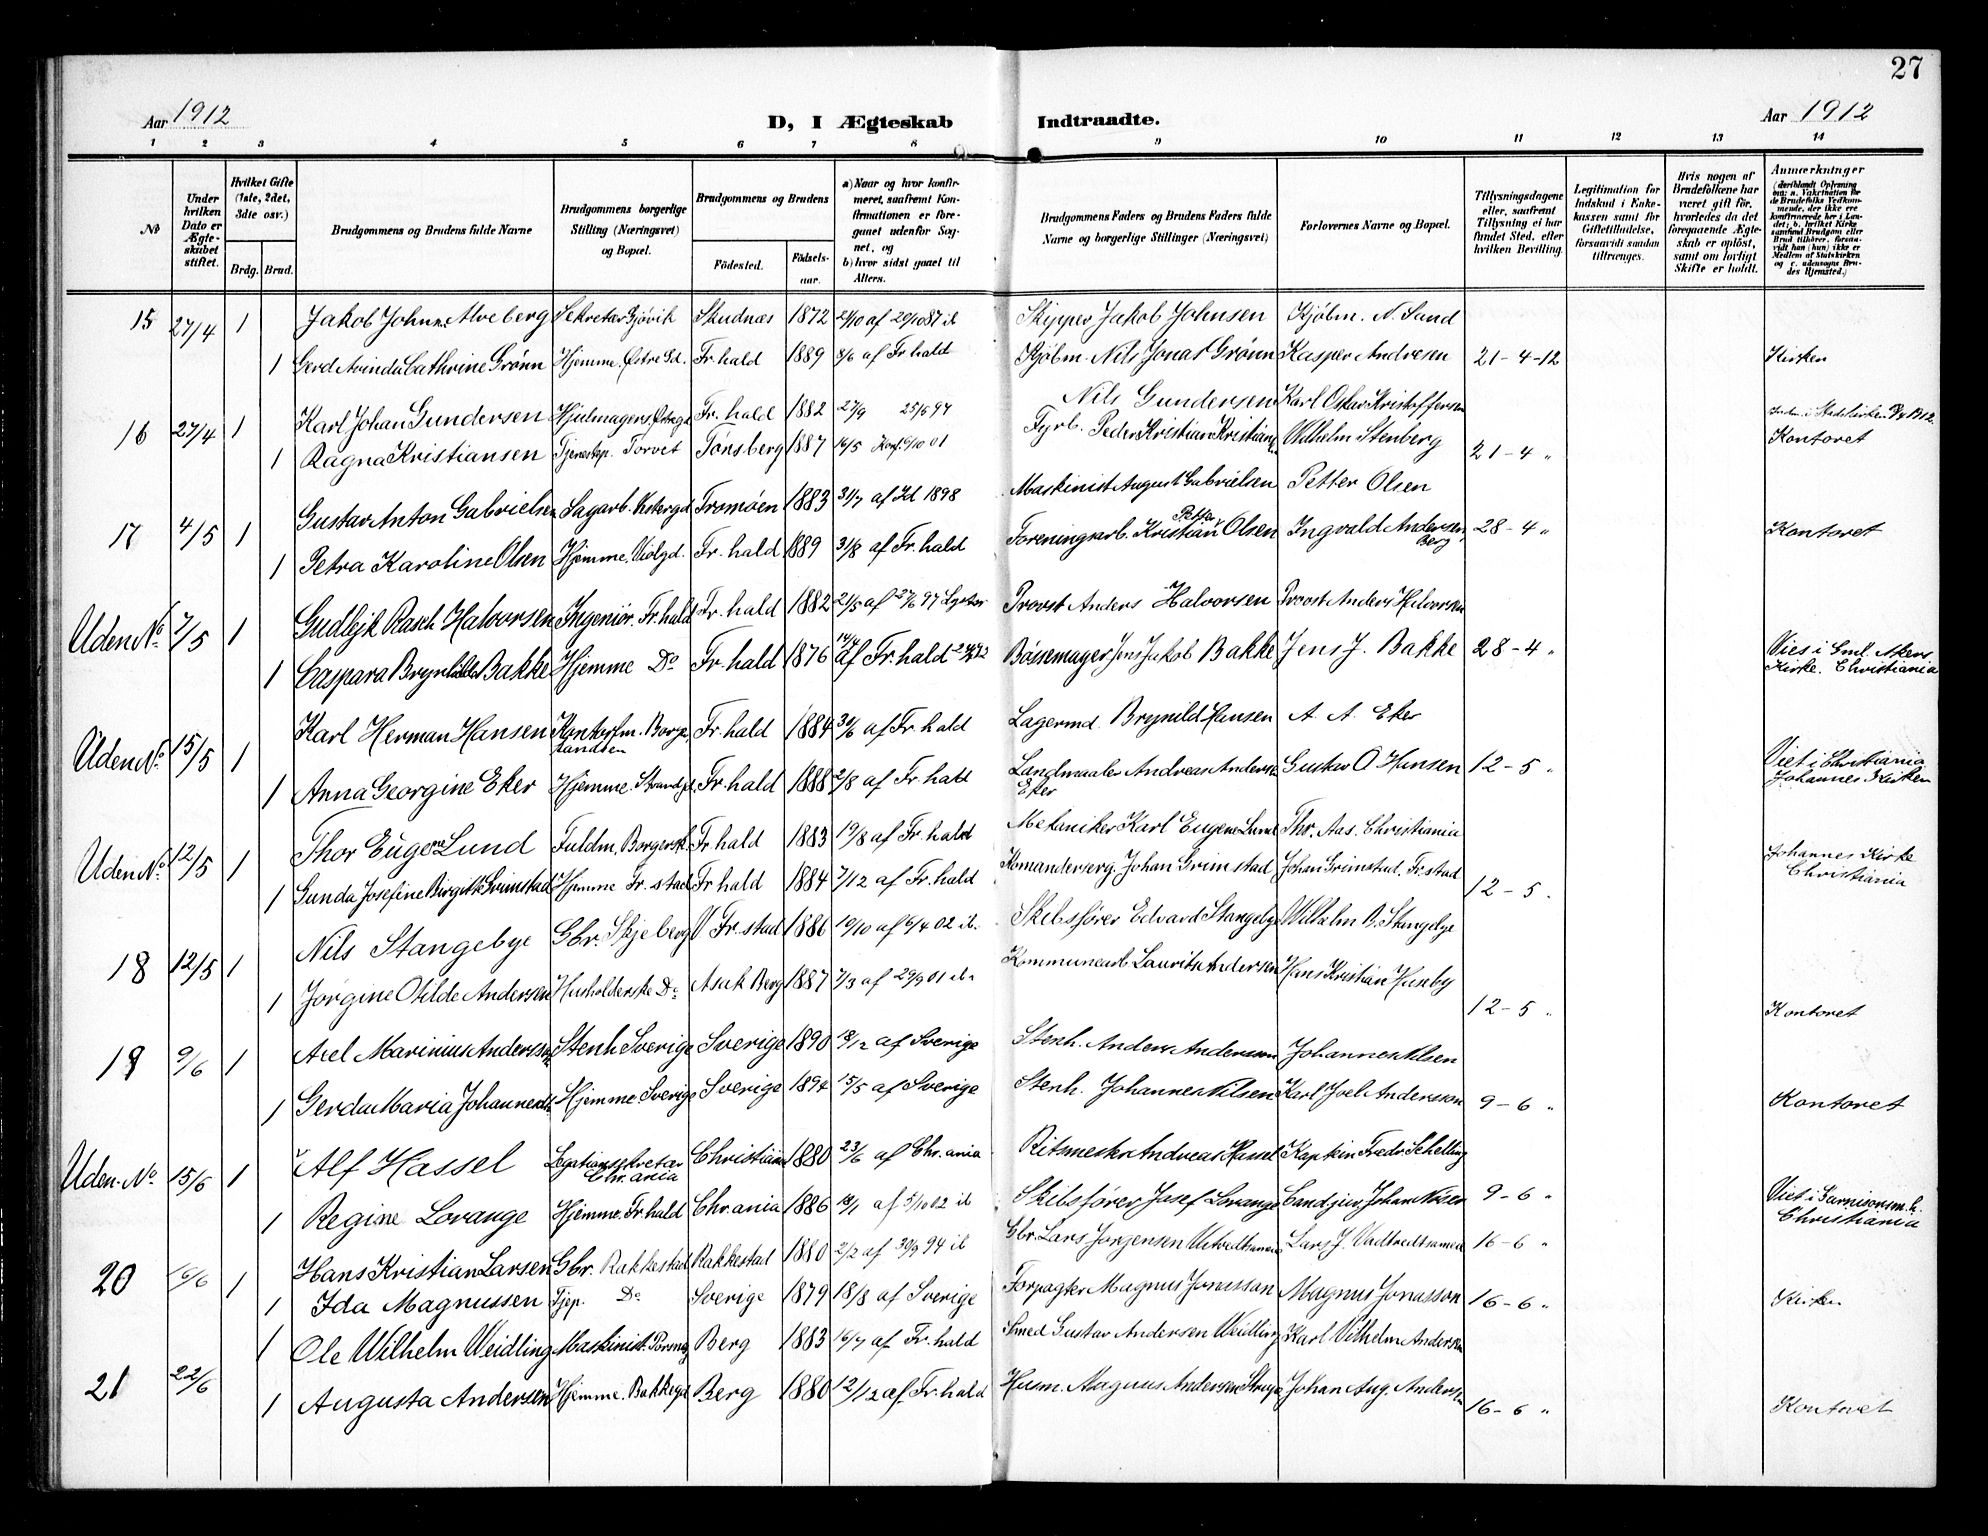 27
Aar 1912 D, I Ægteskab Indtraadte. Aar 1912
1 2 3 4 5 6 7 8 9 10 11 12 13 14
No
Under hvilken Dato er Ægteskabet stiftet.
Hvilket Gifte (1ste, 2det, 3die osv.)
Brdg. Brud.
Brudgommens og Brudens fulde Navne
Brudgommens borgerlige Stilling (Næringsvei) og Bopæl.
Brudgommens og Brudens
Fødested. Fødselsaar.
a) Naar og hvor konfirmeret, saafremt Konfirmationen er foregaaet udenfor Sognet, og
b) hvor sidst gaaet til Alters.
Brudgommens Faders og Brudens Faders fulde Navne og borgerlige Stillinger (Næringsvei)
Forlovernes Navne og Bopæl.
Tillysningsdagene eller, saafremt Tillysning ei har fundet Sted, efter hvilken Bevilling.
Legitimation for Indskud i Enkekassen samt for Giftetilladelse, forsaavidt saadan tiltrænges.
Hvis nogen af Brudefolkene har været gift før, hvorledes da det foregaaende Ægteskab er opløst, samt om lovligt Skifte er holdt.
Anmerkninger (deriblandt Oplysning om: a. Vakcination for de Brudefolks Vedkommende, der ikke ere konfirmerede her i Landet; b. hvilket Kirkesamfund Brudgom eller Brud tilhører, forsaavidt han (hun) ikke er Medlem af Statskirken og c. udensogns Brudes Hjemsted.)
15 27/4 1 Jakob John. Alveberg Sekretær Gjøvik Skudnæs 1872 2/10 af 29/10 87 ib Skipper Jakob Johnsen Kjøbm. N. Sand
1 Gerd Arinda Cathrine Grønn Hjemme. Østre Gd. Fr.hald 1889 8/6 af Fr.hald Kjøbm. Nils Jonas Grønn Kasper Andresen 21-4-12 Kirken
16 27/4 1 Karl Johan Gundersen Hjulmagers. Fr.hald 1882 27/9 25/5 97 Nils Gundersen Karl Oskar Kristoffersen
1 Ragna Kristiansen Tjenestep. Torvet Tønsberg 1887 16/5 Konf. 6/10 01 Fyrb. Peder Kristian Kristians. Wilhelm Stenberg 21-4 " Kontoret
17 4/5 1 Gustav Anton Gabrielsen Sagarb. Vestergd Tromøen 1883 31/7 af Id 1898 Maskinist August Gabrielsen Petter Olsen
1 Petra Karoline Olsen Hjemme, Violgd. Fr.hald 1889 3/8 af Fr.hald Foreningsarb. Kristian Petter Olsen Ingvald Andersen Berg 28-4 " Kontoret
Uden No 7/5 1 Gudleik Rasch Halvorsen Ingeniør. Fr.hald Fr.hald 1882 2/5 af 27/6 97 Provst Anders Halvorsen Provst Anders Halvorsen
1 Caspara Brynhilda Bakke Hjemme Do Fr.hald 1876 14/4 af Fr.hald Bøssemager Jens Jakob Bakke Jens J. Bakke 28-4 " Viet i Gml. Akers Kirke. Christiania
Uden No. 15/5 1 Karl Herman Hansen Kontorfm. Borge Fr.hald 1884 30/6 af Fr.hald Lagermd. Brynild Hansen A. A. Eker
1 Anna Georgine Eker Hjemme. Strandgd. Fr.hald 1888 2/8 af Fr.hald Landmaaler Andreas Anders. Eker Gustav O Hansen 12-5 " Viet i Christiania Johannes Kirken
Uden No. 12/5 1 Thor Eugene Lund Fuldm. Borgersk. Fr.hald 1883 19/8 af Fr.hald Mekaniker Karl Eugene Lund Thr. Aas. Christiania
1 Gunda Josefine Birgitte Grimstad Hjemme Fr.stad Fr.hald 1884 7/12 af Fr.hald Komandersrg. Johan Grimstad Johan Grimstad. Fr.stad 12-5. Johannes Kirke Christiania
18 12/5 1 Nils Stangebye Gbr. Skjeberg V Fr.stad 1886 19/10 af 6/4 02 ib. Skibsfører Edvard Stangebye Wilhelm B. Stangebye
1 Jørgine Otilde Andersen Husholderske Do Asak Berg 1887 7/3 af 29/9 01 ib. Kommunearb. Laurits Andersen Hans Kristian Husby 12-5 " Kontoret
19 9/6 1 Axel Marinius Andersson Stenh Sverige Sverige 1890 18/12 af Sverige Stenh. Anders Andersson Johannes Nilsen
1 Gerda Maria Johannesds. Hjemme. Sverige Sverige 1894 15/5 af Sverige Stenh. Johannes Nilsen Karl Joel Andersson 9-6 " Kontoret
Uden No. 15/6 1 Alf Hassel Legationssekretær Chr.ania Christiania 1880 23/6 af Chr.ania Ritmester Andreas Hassel Kaptein Fredr. Schelling
1 Regine Lorange Hjemme, Fr.hald Chr.ania 1886 18/1 af 5/10 02 ib Skibsfører Josef Lorange Cand jur. Johan Nilsen 9-6 " Viet i Garnisonsm.k. Christiania
20 16/6 1 Hans Kristian Larsen Gbr. Rakkestad Rakkestad 1880 2/2 af 30/9 94 ib Gbr. Lars Jørgensen Lars J. 16-6 "
1 Ida Magnussen Tjep. Do Sverige 1879 18/8 af Sverige Forpagter Magnus Jonasson Magnus Jonasson 16-6 " Kirken
21 22/6 1 Ole Wilhelm Weidling Maskinist. Berg 1883 16/7 af Fr.hald Smed Gustav Andersen Weidling Karl Vilhelm Andersen
1 Augusta Andersen Hjemme. Bakkegd Berg 1880 12/12 af Fr.hald Husm. Magnus Andersen Johan Aug. Andersen 16-6 " Kontoret